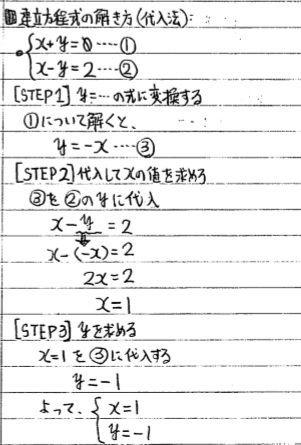 連立方程式の解き方(代入法):
x+y=0…①
x-y=2…②
[STEP1] y=…の式に変換する
①について解くと、
y=-x…③
[STEP2]代入してxの値を求める
③を②のyに代入
x-y=2
x-(-x)=2
2x=2
x=1
[STEP3]yを求める
x=1を③に代入する
y=-1
よって、{x=1
y=-1